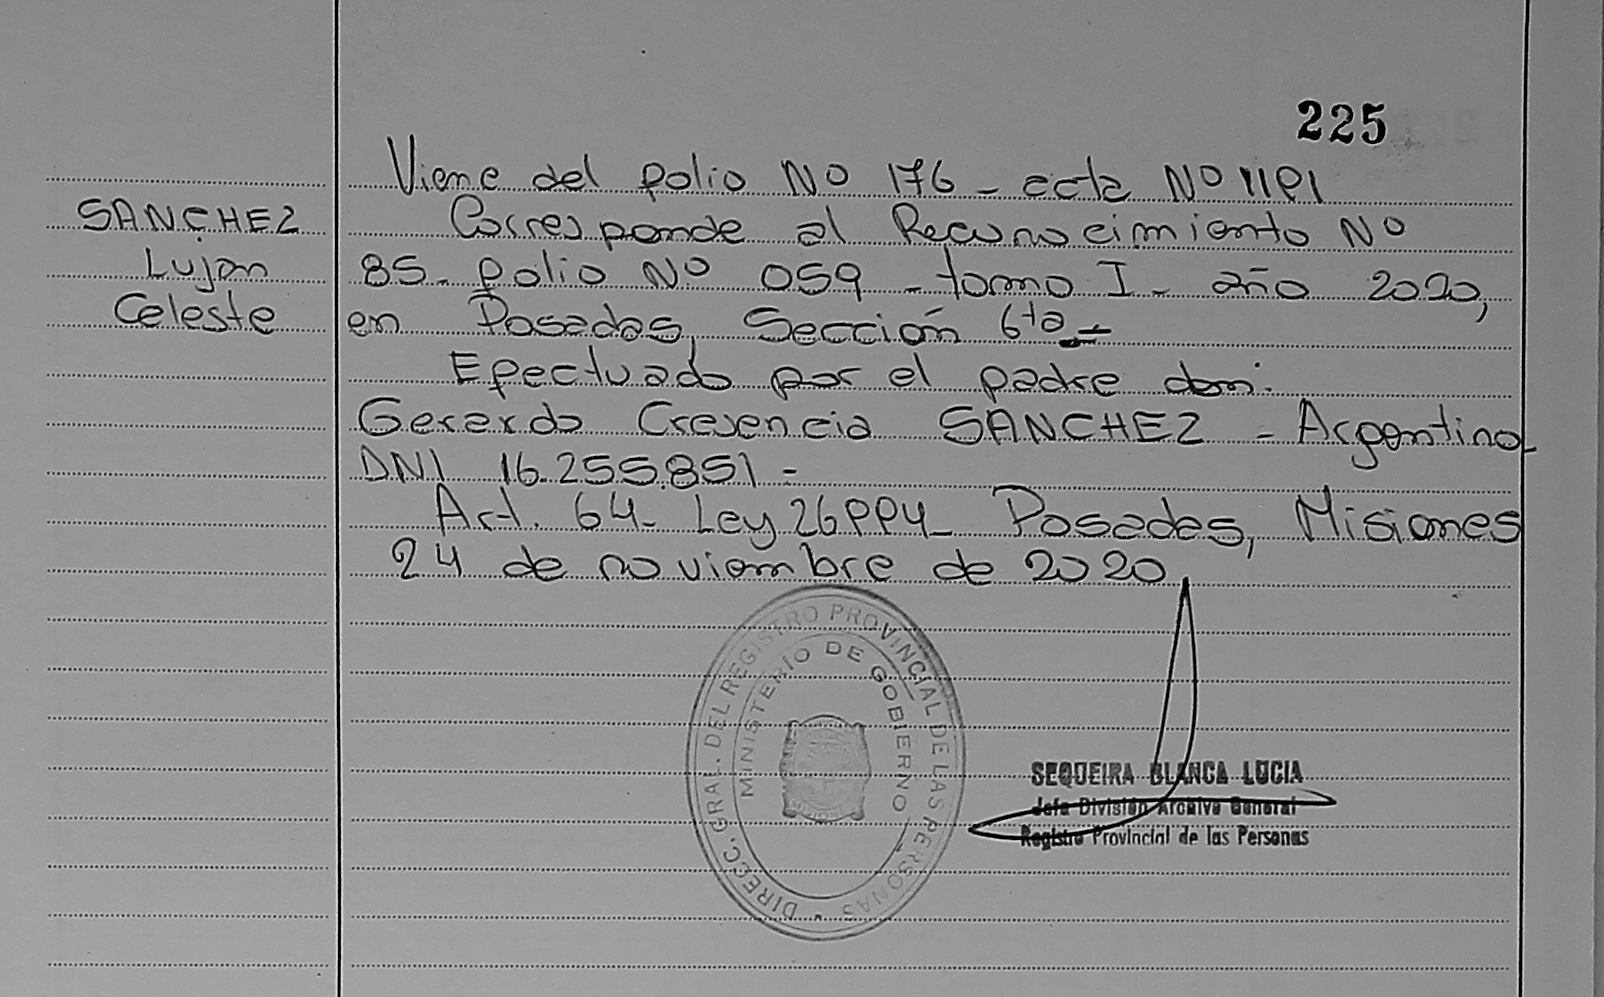 225
Viene del folio Nº 176 - acta Nº 1191
SANCHEZ
Lujan
Celeste
Corresponde al Reconocimiento Nº
85- folio Nº 059 - tomo I - año 2020,
en Posadas, Sección 6ta -
Efectuado por el padre don:
Gerardo Cresencio SANCHEZ - Argentino
DNI 16.255.851 -
Art. 64- Ley 26994- Posadas, Misiones
24 de noviembre de 2020
DIRECC. GRAL. DEL REGISTRO PROVINCIAL DE LAS PERSONAS
MINISTERIO DE GOBIERNO
SEQUEIRA BLANCA LUCIA
Jefa División Archivo General
Registro Provincial de las Personas